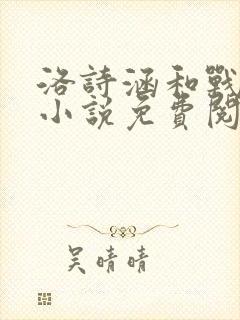 洛詩涵和戰
小說免費閱
吳晴晴